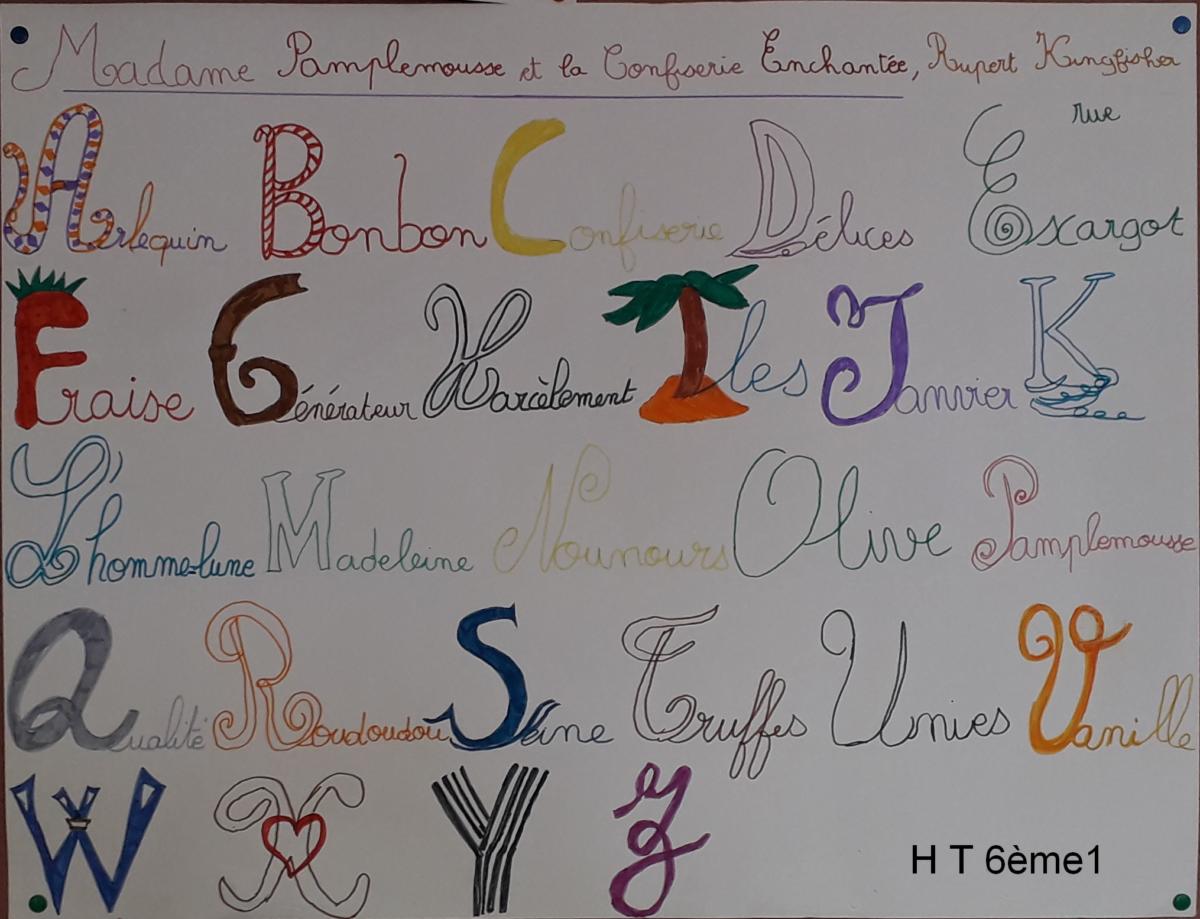 Madame Pamplemousse et la Confiserie Enchantée, Rupert Kingfisher
Arlequin Bonbon Confiserie Délices rue Exargot
Fraise Générateur Harcèlement Iles Janvier K
L'homme-lune Madeleine Nounours Olive Pamplemousse
Qualité Roudoudou Seine Truffes Unies Vanille
W X Y Z
H T 6ème1